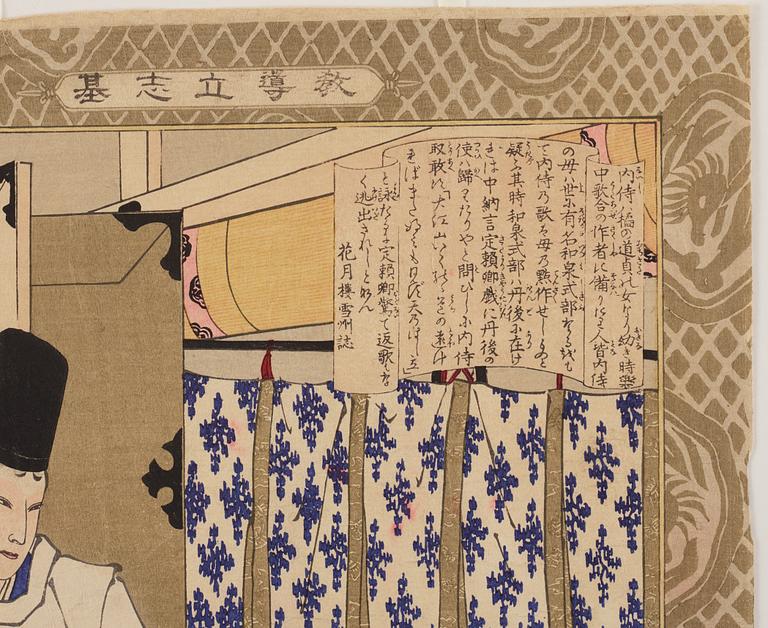 教導立志基
内侍ハ橘の道貞の女なり幼き時
中歌合の作者に備りしを人皆内侍
の母ハ世に有名和泉式部なるゆゑ
て内侍の歌も母の點作せしものと
疑ふ其時和泉式部ハ丹後に在け
きは中納言定頼卿戯に丹後の
使ハ歸りたりやと問ひしに内侍
取敢ず「大江山いくのゝ道の遠け
ればまだふみも見ず天の橋立」
と詠たるに定頼卿驚て返歌もな
く逃出されしとなん
花月樓雪州誌